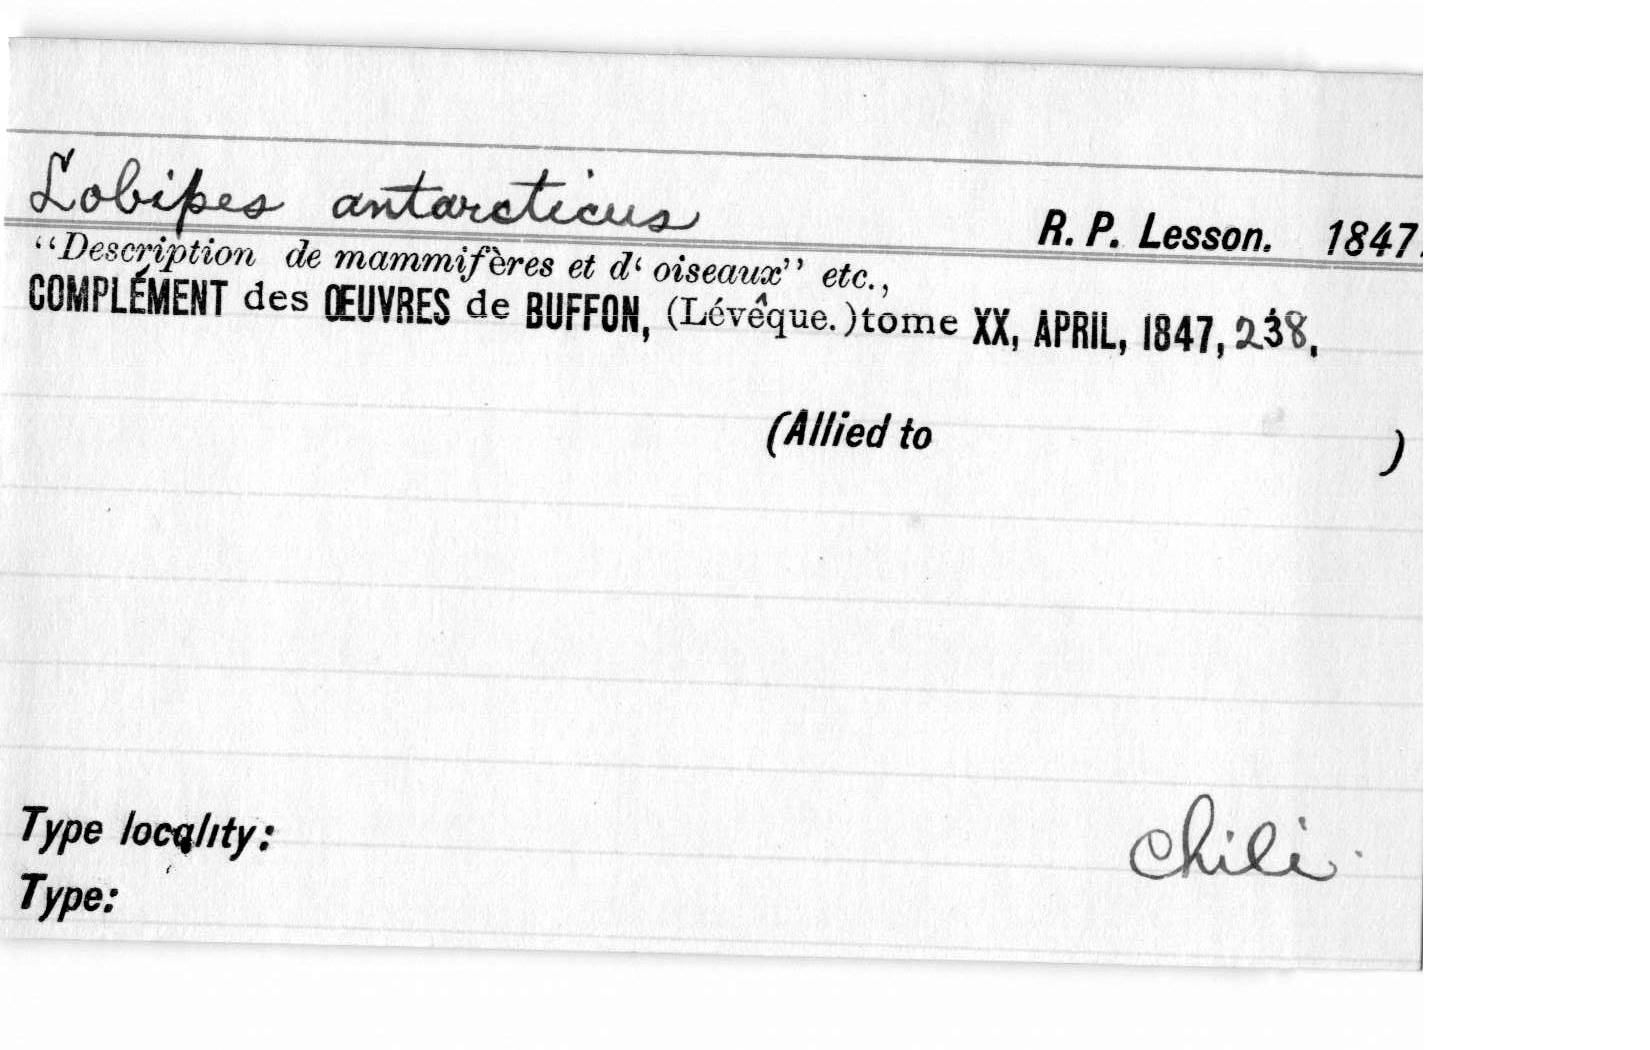 Lobipes antarcticus R. P. Lesson. 1847.
“Description de mammifères et d‘ oiseaux” etc.,
COMPLÉMENT des ŒUVRES de BUFFON, (Lévêque.) tome XX, APRIL, 1847, 238.
(Allied to )
Type locality: Chili.
Type: